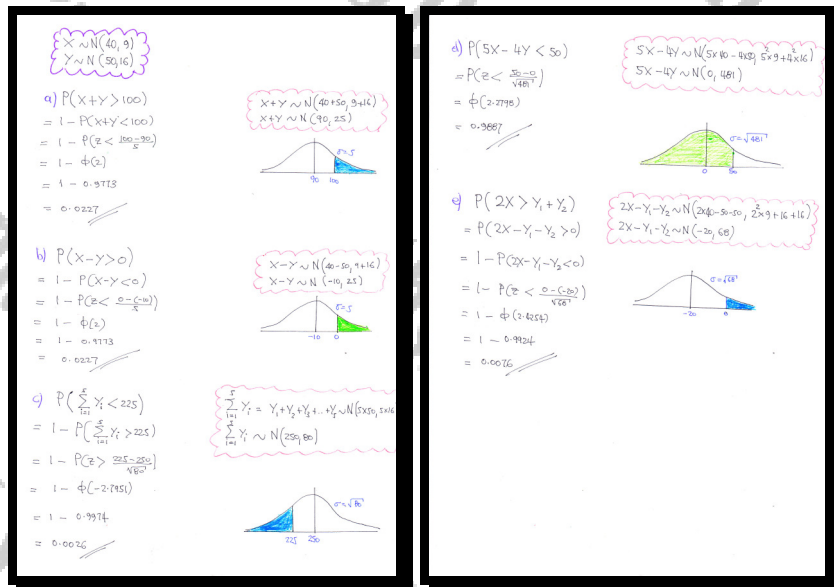 X ~ N(40, 9)
Y ~ N(50, 16)
a) P(X+Y > 100)
= 1 - P(X+Y < 100)
= 1 - P(Z < (100-90)/5)
= 1 - ϕ(2)
= 1 - 0.9773
= 0.0227
X+Y ~ N(40+50, 9+16)
X+Y ~ N(90, 25)
σ=5
90 100
b) P(X-Y>0)
= 1 - P(X-Y<0)
= 1 - P(Z < (0-(-10))/5)
= 1 - ϕ(2)
= 1 - 0.9773
= 0.0227
X-Y ~ N(40-50, 9+16)
X-Y ~ N(-10, 25)
σ=5
-10 0
c) P(∑_{i=1}^{5} Yi < 225)
= 1 - P(∑_{i=1}^{5} Yi > 225)
= 1 - P(Z > (225-250)/√80)
= 1 - ϕ(-2.7951)
= 1 - 0.9974
= 0.0026
∑_{i=1}^{5} Yi = Y1+Y2+Y3+..+Y5 ~ N(5x50, 5x16
∑_{i=1}^{5} Yi ~ N(250, 80)
σ=√80
225 250
d) P(5X - 4Y < 50)
= P(Z < (50-0)/√481)
= ϕ(2.2798)
= 0.9887
5X - 4Y ~ N(5x40-4x50, 5²x9+4²x16)
5X - 4Y ~ N(0, 481)
σ=√481
0 50
e) P(2X > Y1 + Y2)
= P(2X - Y1 - Y2 > 0)
= 1 - P(2X - Y1 - Y2 < 0)
= 1 - P(Z < (0-(-20))/√68)
= 1 - ϕ(2.4254)
= 1 - 0.9924
= 0.0076
2X - Y1 - Y2 ~ N(2x40-50-50, 2²x9+16+16)
2X - Y1 - Y2 ~ N(-20, 68)
σ=√68
-20 0